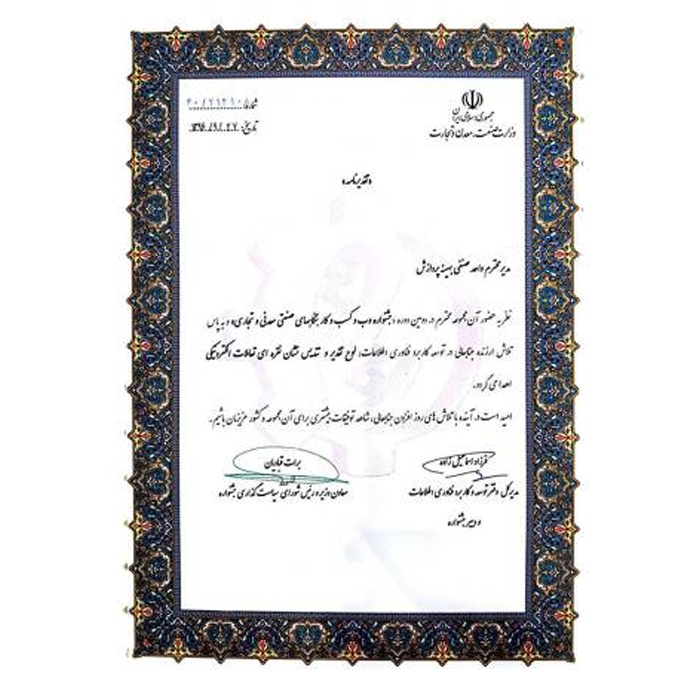 جمهوری اسلامی ایران
وزارت صنعت، معدن و تجارت
شماره: ۴۰/۲۱۴۱۰
تاریخ: ۱۳۹۶/۹/۲۷
«تقدیرنامه»
مدیر محترم واحد صنفی بهینه پردازش
نظر به حضور آن مجموعه محترم در دومین دوره «جشنواره وب و کسب و کار بنگاههای صنعتی معدنی و تجاری» و به پاس
تلاش ارزنده جنابعالی در توسعه کاربرد فناوری اطلاعات، لوح تقدیر و تندیس نشان نقره ای تعاملات الکترونیکی
اهدا می گردد.
امید است در آینده با تلاش های روز افزون جنابعالی، شاهد توفیقات بیشتری برای آن مجموعه و کشور عزیزمان باشیم.
فرزاد اسماعیل زاده
مدیر کل دفتر توسعه و کاربرد فناوری اطلاعات
و دبیر جشنواره
برات قنبریان
معاون وزیر و رئیس شورای سیاست گذاری جشنواره